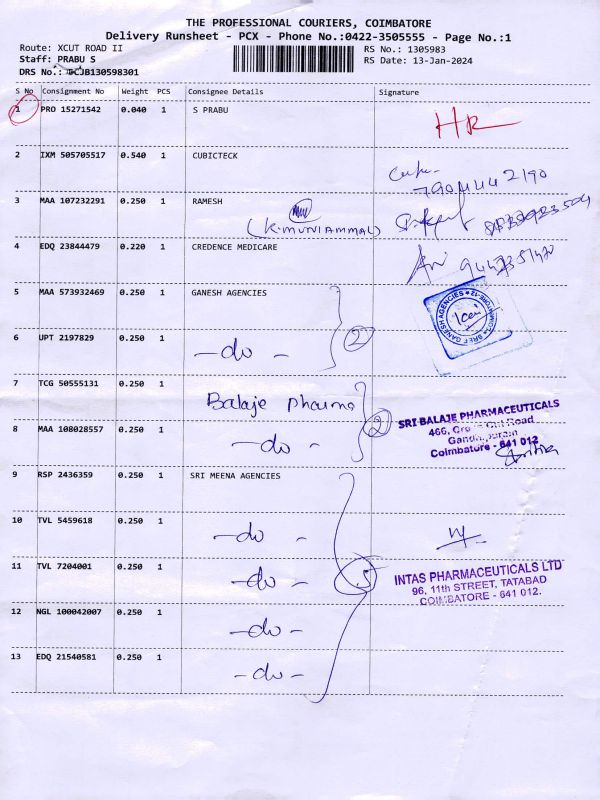 THE PROFESSIONAL COURIERS, COIMBATORE
Delivery Runsheet - PCX - Phone No.:0422-3505555 - Page No.:1
Route: XCUT ROAD II
RS No.: 1305983
Staff: PRABU S
RS Date: 13-Jan-2024
DRS No.: DCJB130598301
S No Consignment No Weight PCS Consignee Details Signature
1 PRO 15271542 0.040 1 S PRABU HR
2 IXM 505705517 0.540 1 CUBICTECK
3 MAA 107232291 0.250 1 RAMESH
(K.MUNIAMMAL)
4 EDQ 23844479 0.220 1 CREDENCE MEDICARE
5 MAA 573932469 0.250 1 GANESH AGENCIES
SREE GANESH AGENCIES
6 UPT 2197829 0.250 1 -do- 2
7 TCG 50555131 0.250 1 Balaje pharma
8 MAA 108028557 0.250 1 -do- 2
SRI BALAJE PHARMACEUTICALS
466, Cross Cut Road
Gandhipuram
Coimbatore - 641 012
9 RSP 2436359 0.250 1 SRI MEENA AGENCIES
10 TVL 5459618 0.250 1 -do-
11 TVL 7204001 0.250 1 -do- 5
INTAS PHARMACEUTICALS LTD
96, 11th STREET, TATABAD
COIMBATORE - 641 012.
12 NGL 100042007 0.250 1 -do-
13 EDQ 21540581 0.250 1 -do-